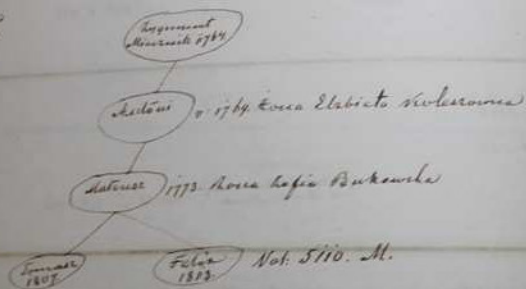 Zygmunt
Mieznik 1764
Antoni r. 1769. żona Elżbieta
Mateusz 1773. żona Zofia Bukowska
Tomasz
1807
Felix
1813
Nob. 5110. M.